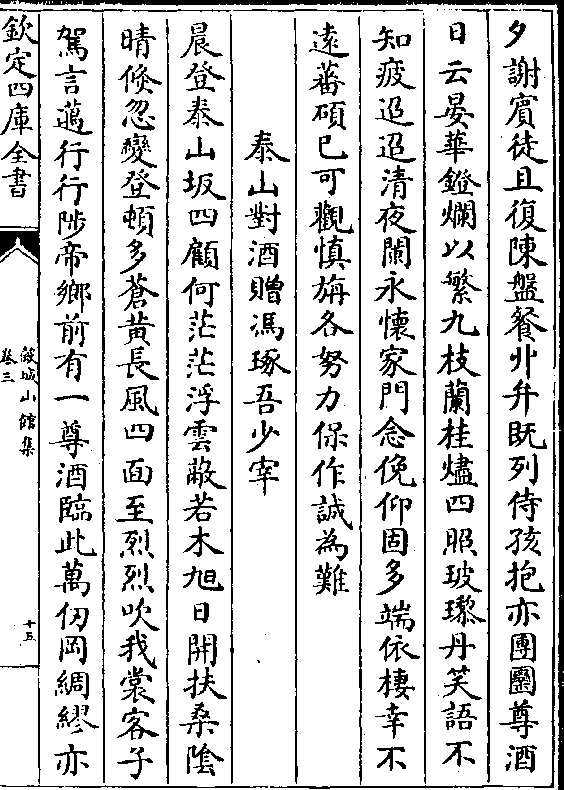 夕謝賓徒且復陳盤餐丱弁既列侍孩抱亦團圞尊酒
日云晏華鐙爛以繁九枝蘭桂燼四照玻瓈丹笑語不
知疲迢迢清夜闌永懷家門念俛仰固多端依棲幸不
遠蕃碩已可觀慎旃各努力保作誠為難
泰山對酒贈馮琢吾少宰
晨登泰山坂四顧何茫茫浮雲蔽若木旭日開扶桑陰
晴倐忽變登頓多蒼黃長風四面至烈烈吹我裳客子
駕言邁行行陟帝鄉前有一尊酒臨此萬仞岡綢繆亦
欽定四庫全書
穀城山館集
卷三
十五